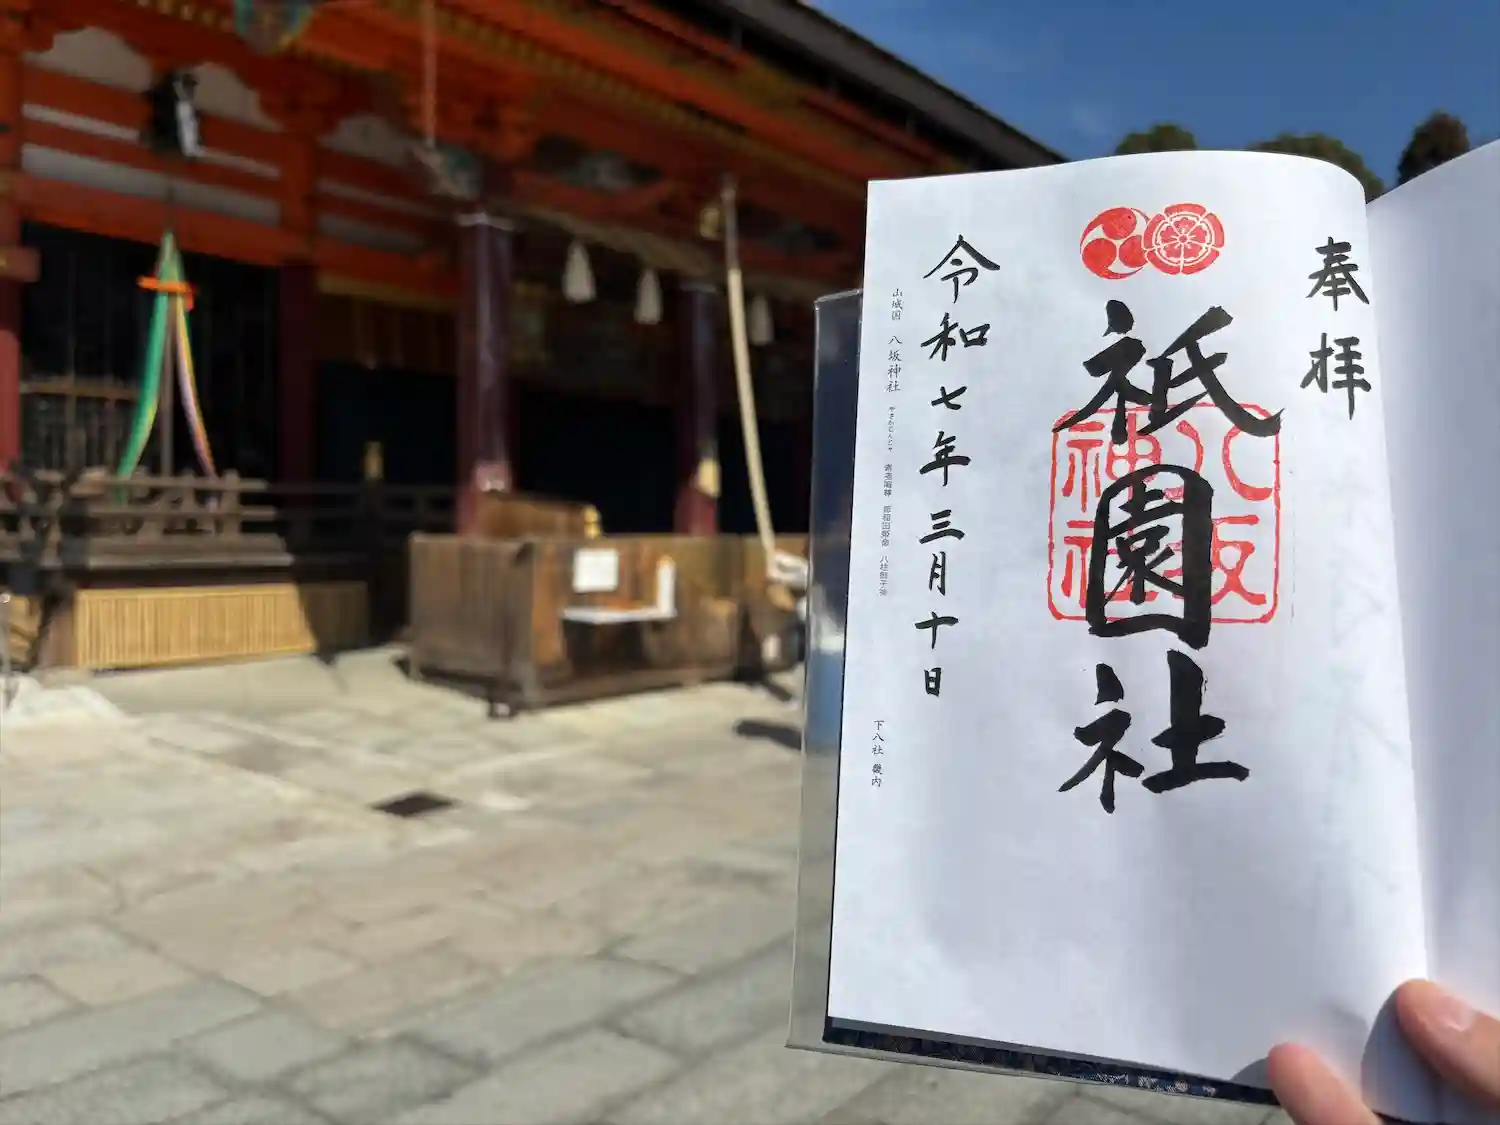 奉拝
祇園社
八坂
神社
令和七年三月十日
山城国 八坂神社 やさかじんじゃ 素戔嗚尊 櫛稲田姫命 八柱御子神
下八社 畿内